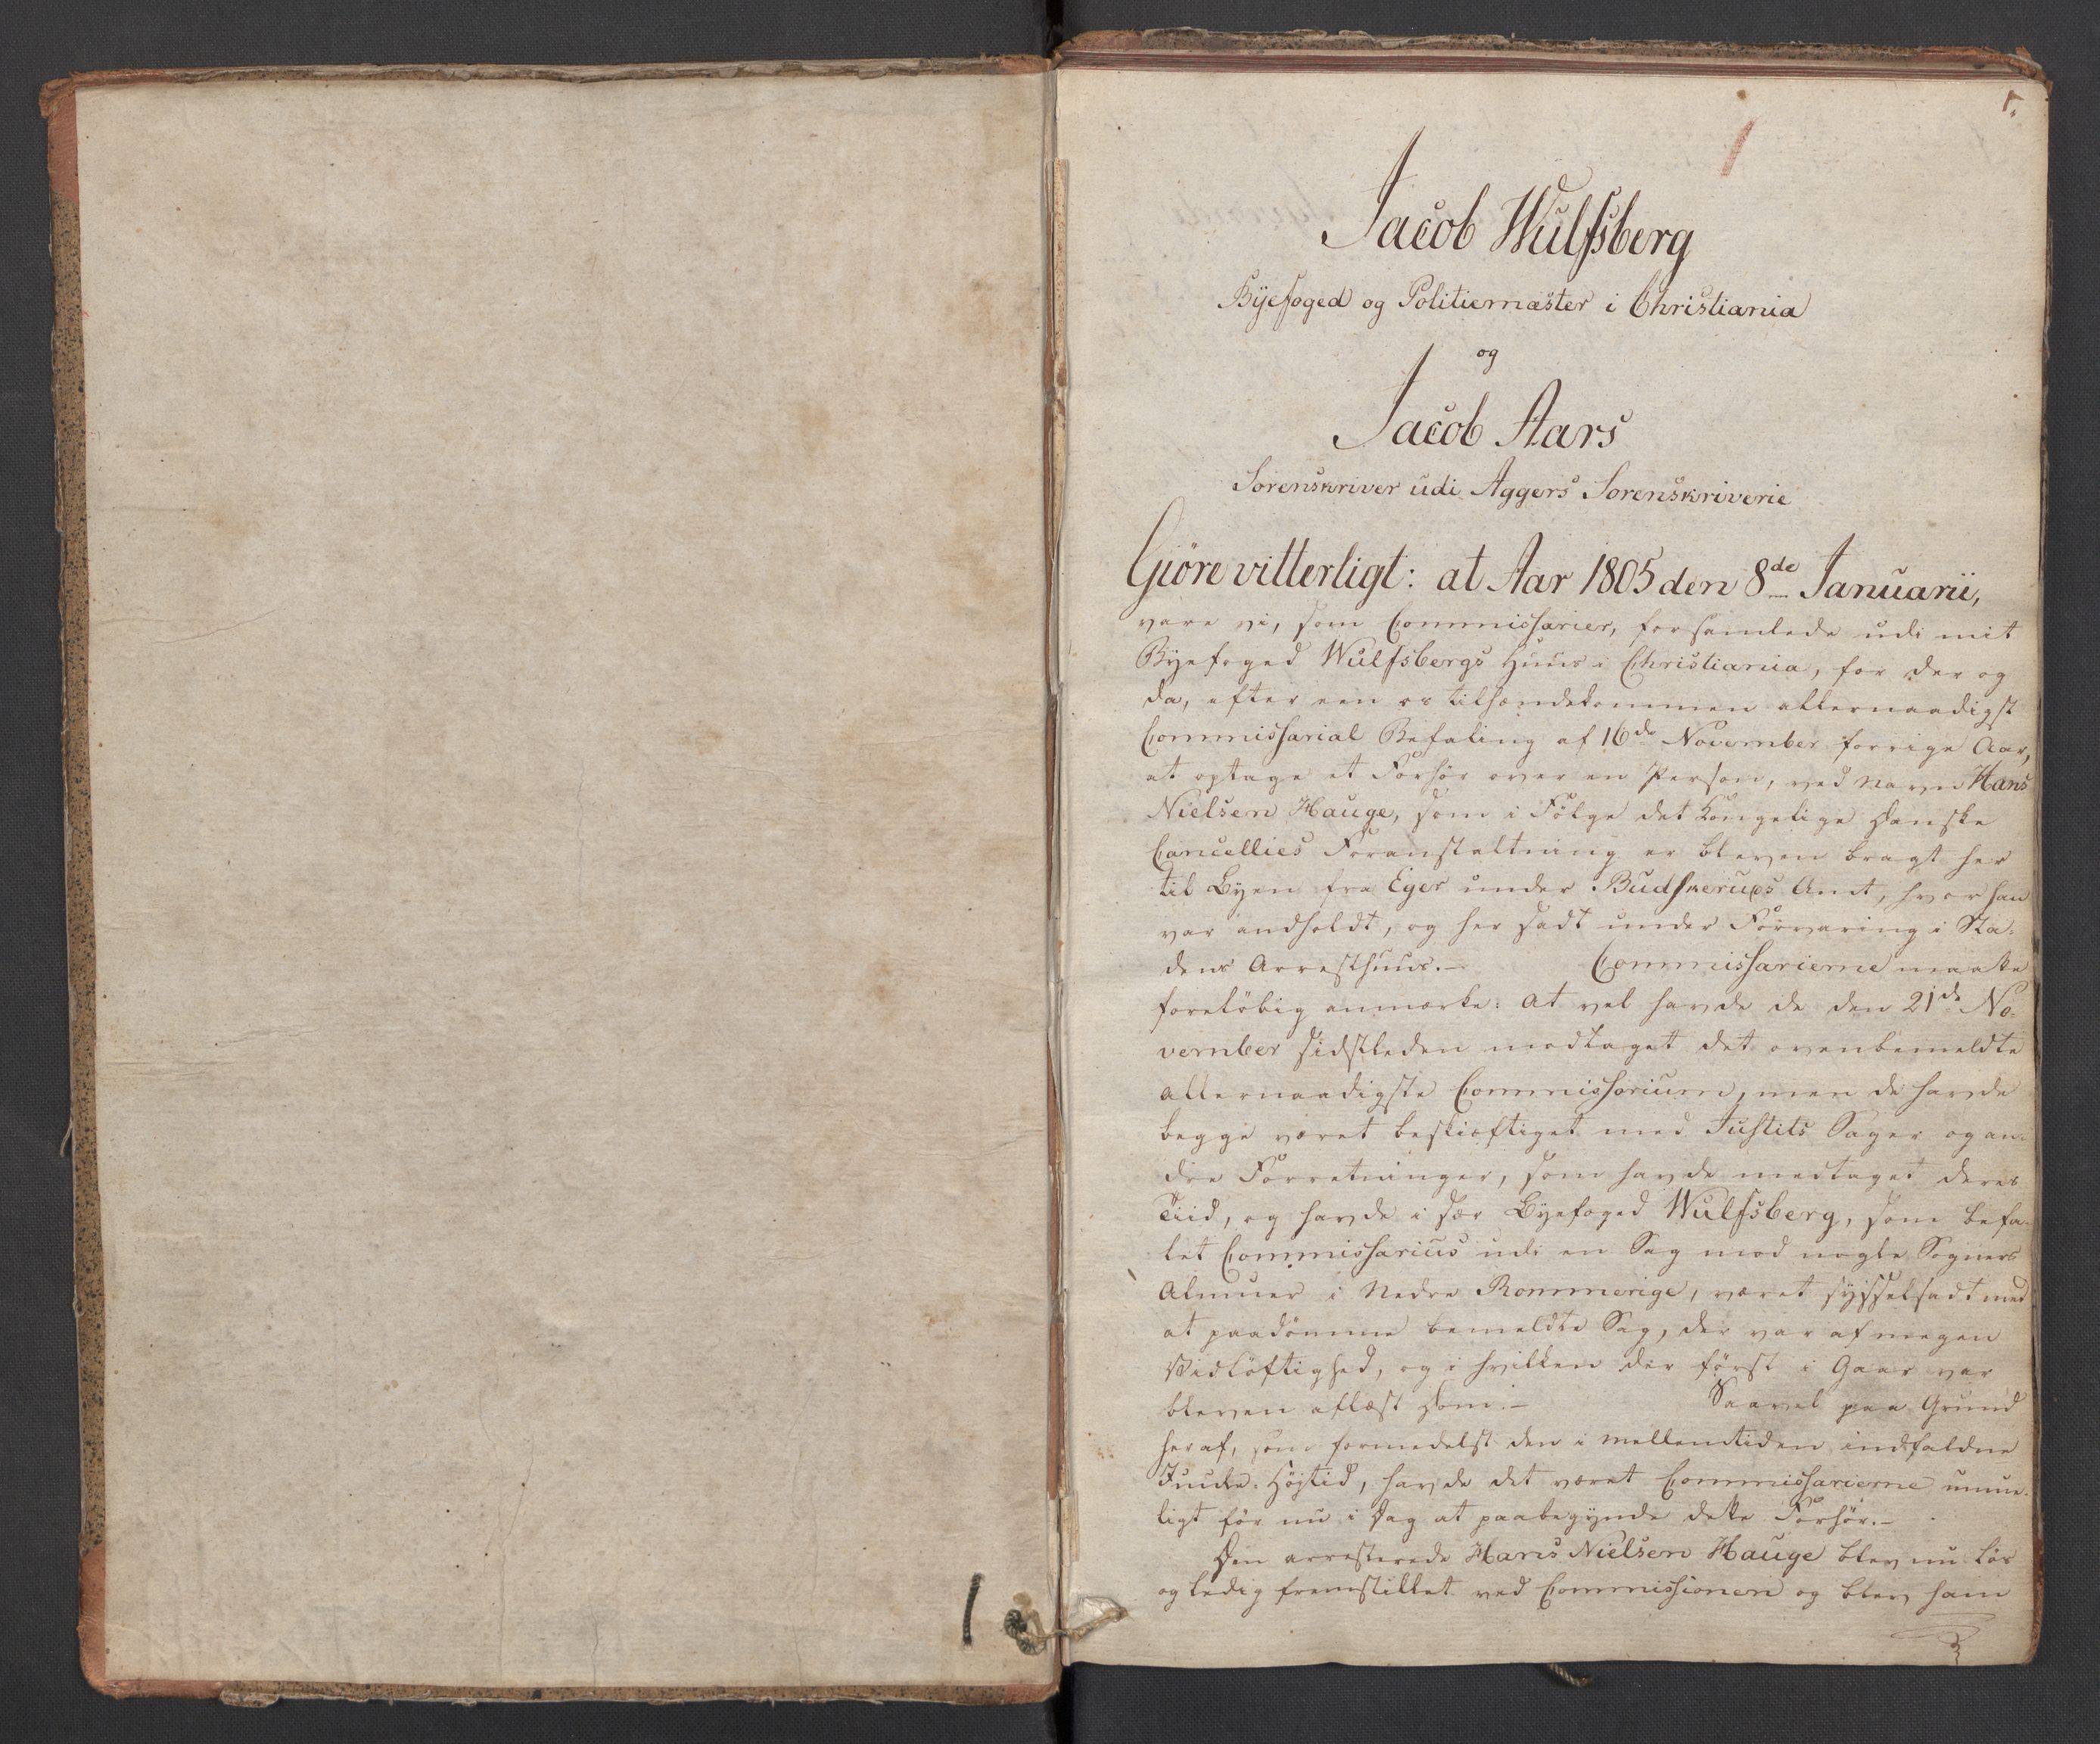 1.
1
Jacob Wulfsberg
Byefoged og Politiemæster i Christiania
og
Jacob Aars
Sorenskriver udi Aggers Sorenskriverie
Giøre vitterligt: at Aar 1805 den 8de Januarii,
vare vi, som Commissarier, forsamlede udi mit
Byefoged Wulfsbergs Huus i Christiania, for der og
da, efter een os tilhændekommen allernaadigst
Commissarial Befaling af 16de November forrige Aar,
at optage et Forhør over en Person, ved Navn Hans
Nielsen Hauge, som i Følge det Kongelige Danske
Cancellies Foranstaltning er bleven bragt her
til Byen fra Eger under Budskeruds Amt, hvor han
var andholdt, og her sadt under Forvaring i Sta-
dens Arresthuus.— Commissarierne maatte
foreløbig anmærke: at vel havde de den 21de No-
vember sidstleden modtaget det ovenbemeldte
allernaadigste Commissorium, men de havde
begge været beskiæftiget med Justits Sager og an-
dre Forretninger, som havde medtaget deres
Tiid, og havde i sær Byefoged Wulfsberg, som befa-
let Commissarius udi en Sag mod nogle Sogners
Almuer i Nedre Rommerige, været sysselsadt med
at paadømme bemeldte Sag, der var af megen
Vidløftighed, og i hvilken der først i Gaar var
bleven aflæst Dom.— Saavel paa Grund
heraf, som formedelst den i mellemtiden indfaldne
Juule-Højtid, havde det været Commissarierne umue-
ligt før nu i Dag at paabegynde dette Forhør.—
Den arresterede Hans Nielsen Hauge blev nu løs
og ledig fremstillet ved Commissionen og blev ham
1